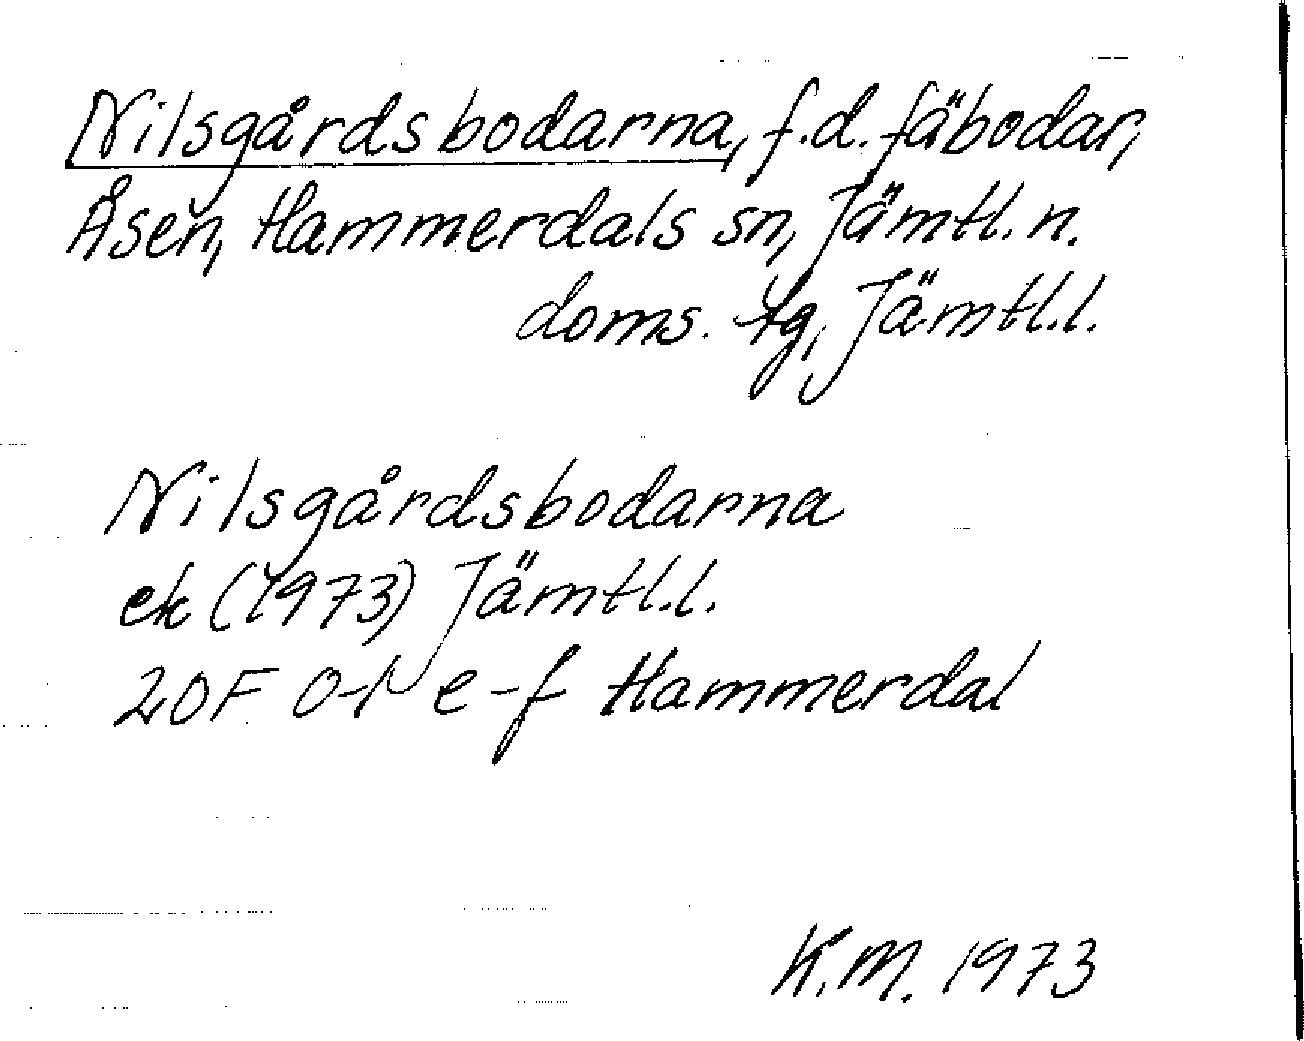 Nilsgårdsbodarna, f.d. fäbodar,
Åsen, Hammerdals sn, Jämtl. n.
doms. tg, Jämtl. l.
Nilsgårdsbodarna
ek (1973) Jämtl. l.
20F 0-1 e-f Hammerdal
K.M. 1973